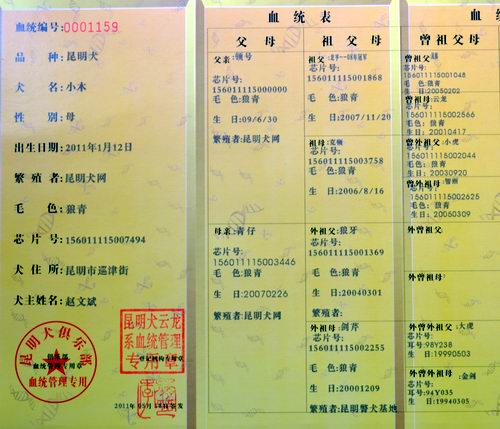 血统编号:0001159
品 种:昆明犬
犬 名:小木
性 别:母
出生日期:2011年1月12日
繁殖者:昆明犬网
毛 色:狼青
芯片号:156011115007494
犬住所:昆明市巡津街
犬主姓名:赵文斌
昆明犬俱乐部
血统管理专用
昆明犬云龙
系血统管理
专用章
血统表
父母
父亲:顿号
芯片号:
156011115000000
毛 色:狼青
生 日:09/6/30
繁殖者:昆明犬网
母亲:青仔
芯片号:
156011115003446
毛 色:狼青
生 日:20070226
繁殖者:昆明犬网
祖父母
祖父:
芯片号:
156011115001868
毛 色:狼青
生 日:2007/11/20
祖母:克顿
芯片号:
156011115003758
毛 色:狼青
生 日:2006/8/16
外祖父:狼牙
芯片号:
156011115001369
毛 色:狼青
生 日:20040301
繁殖者:
外祖母:剑芹
芯片号:
156011115002255
毛 色:狼青
生 日:20001209
繁殖者:昆明警犬基地
曾祖父母
曾祖父:
芯片号:
156011115001048
毛色:狼青
生 日:20050202
曾祖母:云龙
芯片号:
156011115002566
毛色:狼青
生 日:20010417
曾外祖父:小虎
芯片号:
156011115002044
毛色:狼青
生 日:20030920
曾外祖母:智雅
芯片号:
156011115002625
毛色:狼青
生 日:20050309
外曾祖父:
外曾祖母:
外曾外祖父:大虎
芯片号:
耳号:98Y238
生 日:19990503
外曾外祖母:金剑
芯片号:
耳号:94Y035
生 日:19940305